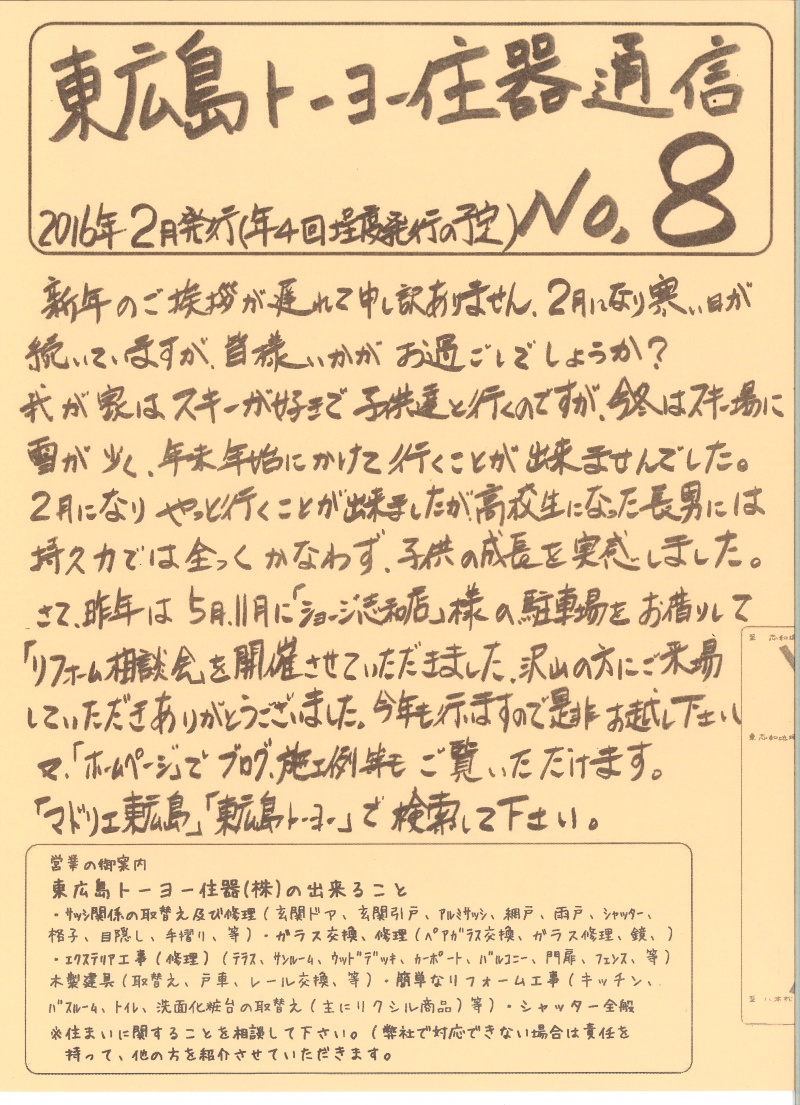 東広島トーヨー住器通信
2016年2月発行(年4回程度発行の予定) No.8
新年のご挨拶が遅れて申し訳ありません、2月になり寒い日が
続いていますが、皆様いかが お過ごしでしょうか?
我が家はスキーが好きで子供達と行くのですが、今冬はスキー場に
雪が少く、年末年始にかけて行くことが出来ませんでした。
2月になり やっと行くことが出来ましたが、高校生になった長男には
持久力では全っく かなわず、子供の成長を実感しました。
さて、昨年は 5月、11月に「ショージ志和店」様の駐車場をお借りして
「リフォーム相談会」を開催させていただきました、沢山の方にご来場
していただきありがとうございました。今年も行ますので是非お越し下さい
又、「ホームページ」でブログ、施工例等もご覧いただけます。
「マドリエ東広島」「東広島トーヨー」で検索して下さい。
営業の御案内
東広島トーヨー住器(株)の出来ること
・サッシ関係の取替え及び修理(玄関ドア、玄関引戸、アルミサッシ、網戸、雨戸、シャッター、
格子、目隠し、手摺り、等)・ガラス交換、修理(ペアガラス交換、ガラス修理、鏡、)
・エクステリア工事(修理)(テラス、サンルーム、ウッドデッキ、カーポート、バルコニー、門扉、フェンス、等)
木製建具(取替え、戸車、レール交換、等)・簡単なリフォーム工事(キッチン、
バスルーム、トイレ、洗面化粧台の取替え(主にリクシル商品)等)・シャッター全般
※住まいに関することを相談して下さい。(弊社で対応できない場合は責任を
持って、他の方を紹介させていただきます。